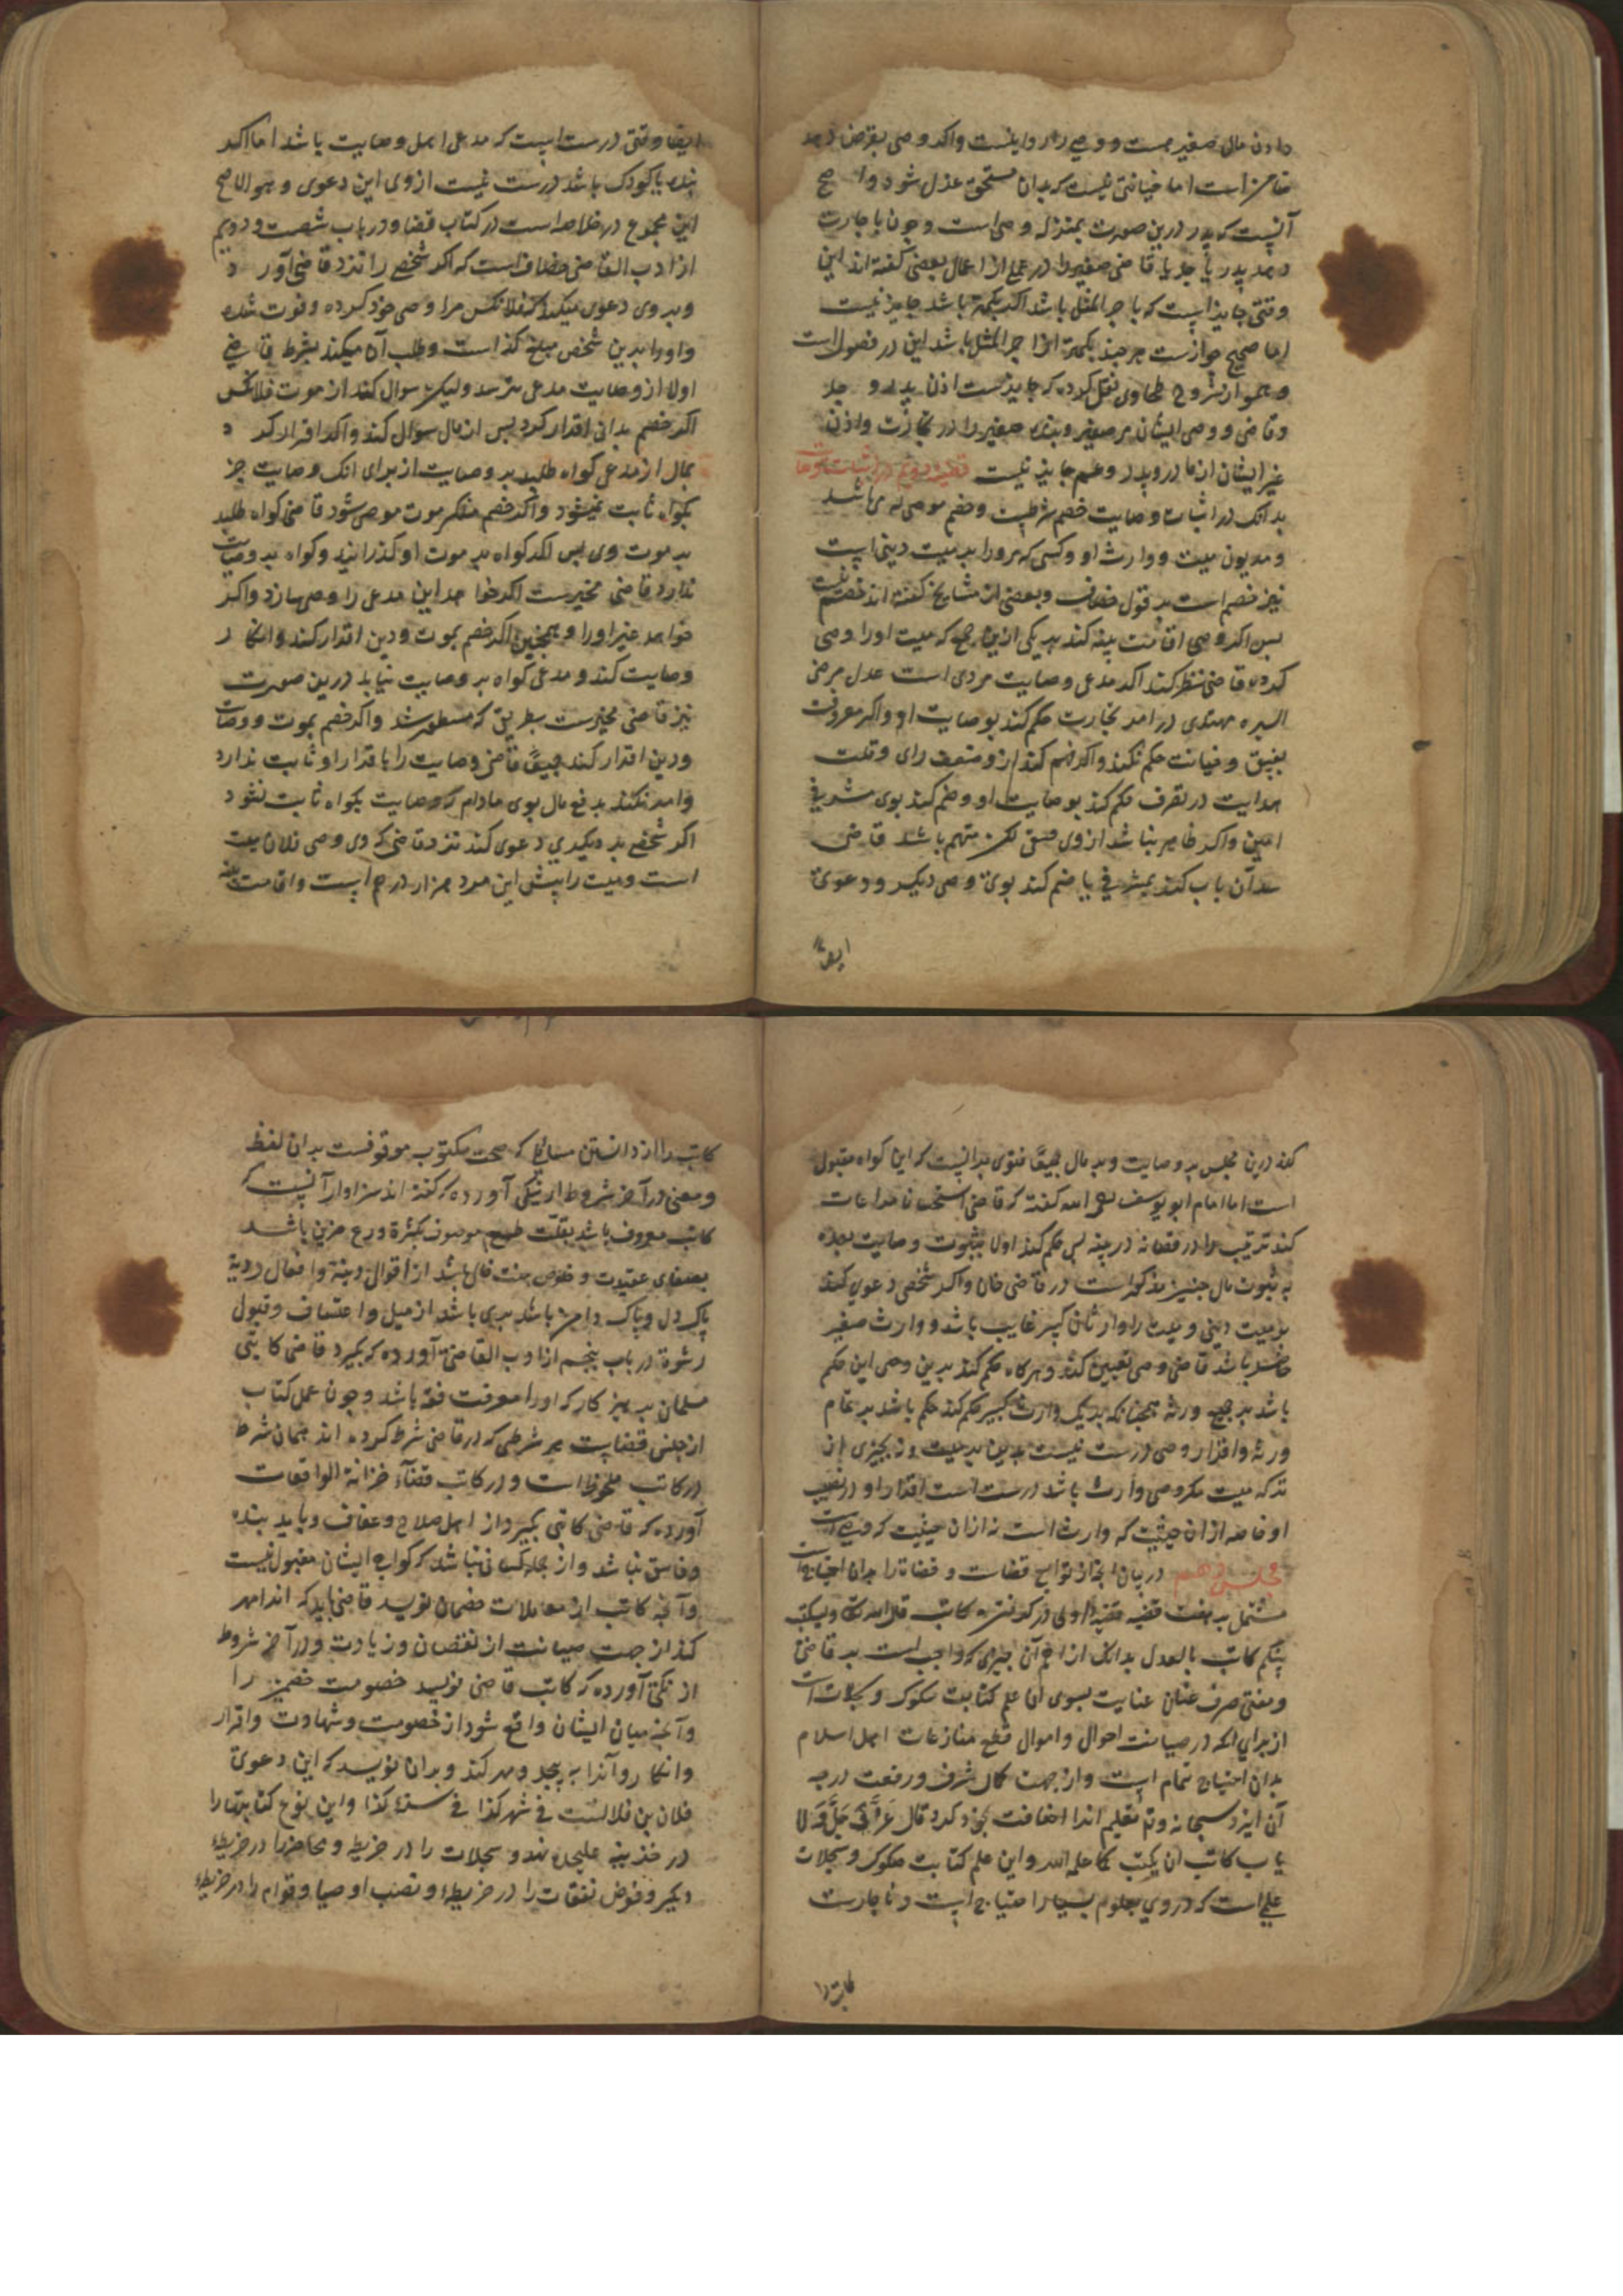 دادن مال صغیر هست و وصی را روا نیست واکر وصی بقرض دهد
ضامن است اما خیانتی نیست که بدان مستحق عزل شود و اصح
آنست که پدر درین صورت بمنزله وصی است و چون باجارت
دهد پدر یا جد یا قاضی صغیر را در عملی از اعمال بعضی کفته اند این
وقتی جایز است که باجر المثل باشد اکر بکمتر باشد جایز نیست
اما صحیح جوازست هر چند بکمتر از اجر المثل باشد این در فصول است
و هم از شروح طحاوی نقل کرده که جایزست اذن پدر و جد
وقاضی و وصی ایشان مر صغیر و بنده صغیر را در تجارت واذن
غیر ایشان از مادر و برادر و عم جایز نیست
بدانک در اثبات وصایت خصم شرطست و خصم موصی له می باشد
و مدیون میت و وارث او و کسی که مرورا بر میت دینی است
نیز خصم است بر قول خصاف و بعضی از مشایخ کفته اند خصم نیست
پس اکر وصی اقامت بینه کند بر یکی ازین جمع که میت اورا وصی
کرده قاضی نظر کند اکر مدعی وصایت مردی است عدل مرضی
السیره مهتدی در امر تجارت حکم کند بوصایت او و اکر معروفست
بفسق و خیانت حکم نکند واکر فهم کند ازو ضعف رای و قلت
هدایت در تصرف حکم کند بوصایت او و ضم کند بوی مشرفی
امین واکر ظاهر نباشد از وی فسق لکن متهم باشد قاضی
سد آن باب کند بمشرفی یا ضم کند بوی وصی دیکر و دعوی
ایصا
ایصا وقتی درست است که مدعی اهل وصایت باشد اما اکر
بنده یا کودک باشد درست نیست از وی این دعوی و هو الاصح
این مجموع در خلاصه است در کتاب قضا و در باب شصت و دویم
از ادب القاضی خصاف است که اکر شخصی را نزد قاضی آورد
و بر وی دعوی میکند که فلانکس مرا وصی خود کرده و فوت شده
و اورا بدین شخص مبلغ کذا است و طلب آن میکند بشرط قاضی
اولا از وصایت مدعی نپرسد ولیکن سوال کند از موت فلانکس
اکر خصم بدانی اقرار کرد پس از مال سوال کند واکر اقرار کرد
بمال از مدعی کواه طلبد بر وصایت از برای انک وصایت جز
بکواه ثابت نمیشود واکر خصم منکر موت موصی شود قاضی کواه طلبد
بر موت وی پس اکر کواه بر موت او کذرانید و کواه بر وصایت
ندارد قاضی مخیرست اکر خواهد این مدعی را وصی سازد و اکر
خواهد غیر اورا و همچنین اکر خصم بموت و دین اقرار کند و انکار
وصایت کند و مدعی کواه بر وصایت نیابد درین صورت
نیز قاضی مخیرست بطریقی که مسطور شد واکر خصم بموت و وصایت
و دین اقرار کند جمیعا قاضی وصایت را باقرار او ثابت ندارد
وامر نکند بدفع مال بوی مادام که وصایت بکواه ثابت نشود
اکر شخصی بر دیکری دعوی کند نزد قاضی که وی وصی فلان میت
است و میت را پیش این مرد هزار درهم است و اقامت بینه
کند درین مجلس بر وصایت و بر مال جمیعا فتوی بدانست که این کواه مقبول
است اما امام ابو یوسف رحمه الله کفته که قاضی استحسانا مراعات
کند ترتیب را در قضا نه در بینه پس حکم کند اولا بثبوت وصایت بعده
به ثبوت مال چنین مذکور است در قاضی خان واکر شخصی دعوی کند
بر میت دینی و میت را وارثان کبیر غایب باشد و وارث صغیر
حاضر باشد قاضی وصی تعیین کند و هرکاه حکم کند بدین وصی این حکم
باشد بر جمیع ورثه همچنانکه بر یک وارث کبیر حکم کند حکم باشد بر تمام
ورثه و اقرار وصی درست نیست بدین بر میت و نه بچیزی از
ترکه میت مکر وصی وارث باشد درست است اقرار او در نصیب
او خاصه ازان حیثیت که وارث است نه ازان حیثیت که وصی است
مجلس دهم در بیان انچه از توابع قضاست و قضاة را بدان احتیاج است
مشتمل بر هفت قضیه قضیه اولی در کونه کاتب قال الله تعالی ولیکتب
بینکم کاتب بالعدل بدانک از اهم آن چیزی که واجب است بر قاضی
و مفتی صرف عنان عنایت بسوی آن علم کتابت صکوک و سجلات است
از برای انکه در صیانت احوال و اموال قطع منازعات اهل اسلام
بدان احتیاج تمام است و از جهت کمال شرف و رفعت درجه
آن ایزد سبحانه و تعالی تعلیم اندا اضافت بخود کرد قال عز و جل ولا
یاب کاتب ان یکتب کما علمه الله و این علم کتابت صکوک و سجلات
علمی است که در وی بعلوم بسیار احتیاج است و ناچارست
کاتب را
کاتب را از دانستن مسائل که صحت مکتوب موقوفست بدان لفظ
و معنی در آخر شروط از نیکی آورده که کفته اند سزاوار آنست که
کاتب معروف باشد بقلت طمع موصوف بکثرة ورع مزین باشد
بصفای عقیدت و خلوص نیت خالی باشد از اقوال دنیه و افعال ردیه
پاک دل و پاک دامن باشد بری باشد از میل و اعتساف و قبول
رشوة در باب پنجم از ادب القاضی آورده که بکیرد قاضی کاتبی
مسلمان پرهیز کار که اورا معرفت فقه باشد و چون عمل کتاب
از جنس قضاست هر شرطی که در قاضی شرط کرده اند همان شرط
در کاتب ملحوظ است و در کاتب قضآء خزانة الواقعات
آورده که قاضی کاتبی بکیرد از اهل صلاح و عفاف و باید بنده
و فاسق نباشد و از جمله کسانی نباشد که کواهی ایشان مقبول نیست
و آنچه کاتب از معاملات خصمان نویسد قاضی باید که اندا مهر
کند از جهت صیانت از نقصان و زیادت و در آخر شروط
از نکتی آورده که کاتب قاضی نویسد خصومت خصمین را
و آنچه میان ایشان واقع شود از خصومت و شهادت و اقرار
و انکار و آنرا به پیچد و مهر کند و بران نویسد که این دعوی
فلان بن فلانست فی شهر کذا فی سنة کذا و این نوع کتابتها را
در خزینه علیحده نهد و سجلات را در خریطه و محاضر را در خریطه
دیکر و فرض نفقات را در خریطه و نصب اوصیا و قوام را در خریطه